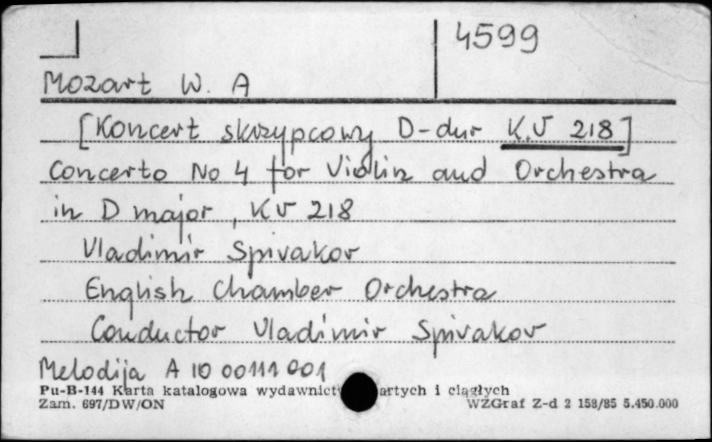 4599
Mozart W. A
[Koncert skrzypcowy D-dur K.V 218]
Concerto No 4 for Violin and Orchestra
in D major, KV 218
Vladimir Spivakov
English Chamber Orchestra
Conductor Vladimir Spivakov
Melodija A 10 00111 001
Pu-B-144 Karta katalogowa wydawnict artych i ciągłych
Zam. 697/DW/ON WZGraf Z-d 2 158/85 5.450.000